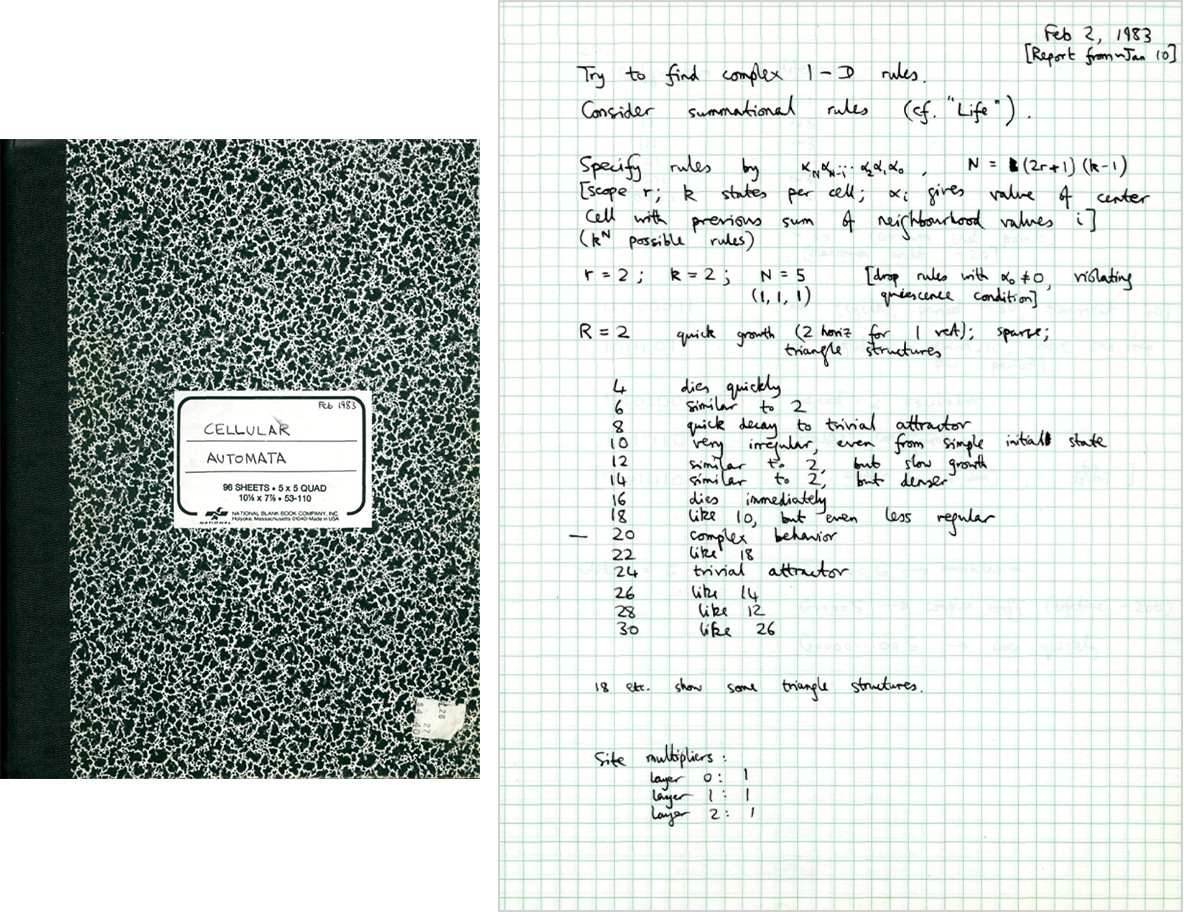 Feb 1983
CELLULAR
AUTOMATA
96 SHEETS • 5 x 5 QUAD
10⅛ x 7⅞ • 53-110
NATIONAL BLANK BOOK COMPANY, INC.
Holyoke, Massachusetts 01040-Made in USA
NATIONAL
Feb 2, 1983
[Report from ~Jan 10]
Try to find complex 1-D rules.
Consider summational rules (cf. "Life").
Specify rules by α_N α_N-1 ... α₂α₁α₀, N = (2r+1)(k-1)
[scope r; k states per cell; αᵢ gives value of center
cell with previous sum of neighbourhood values i]
(k^N possible rules)
r = 2; k = 2; N = 5 [drop rules with α₀ ≠ 0, violating
(1, 1, 1) quiescence condition]
R = 2 quick growth (2 horiz for 1 vert); sparse;
triangle structures
4 dies quickly
6 similar to 2
8 quick decay to trivial attractor
10 very irregular, even from simple initial state
12 similar to 2, but slow growth
14 similar to 2, but denser
16 dies immediately
18 like 10, but even less regular
— 20 complex behavior
22 like 18
24 trivial attractor
26 like 14
28 like 12
30 like 26
18 etc. show some triangle structures.
Site multipliers:
layer 0: 1
layer 1: 1
layer 2: 1